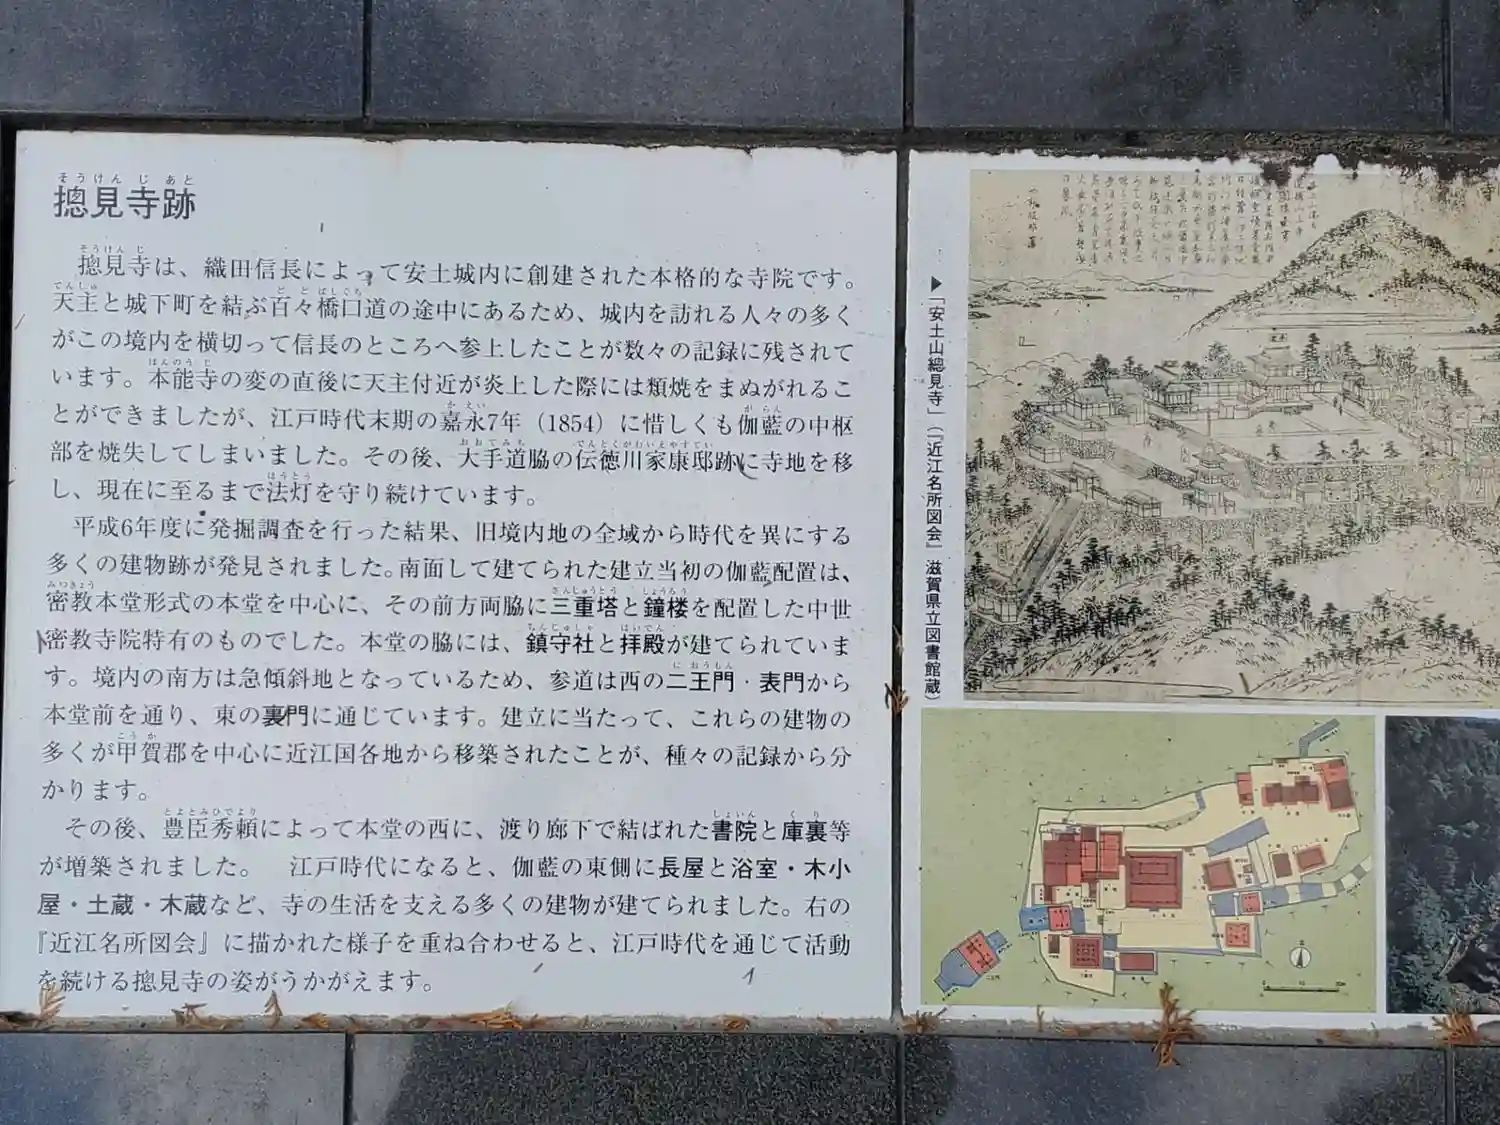 そうけんじあと
摠見寺跡
摠見寺は、織田信長によって安土城内に創建された本格的な寺院です。
天主と城下町を結ぶ百々橋口道の途中にあるため、城内を訪れる人々の多く
がこの境内を横切って信長のところへ参上したことが数々の記録に残されて
います。本能寺の変の直後に天主付近が炎上した際には類焼をまぬがれるこ
とができましたが、江戸時代末期の嘉永7年（1854）に惜しくも伽藍の中枢
部を焼失してしまいました。その後、大手道脇の伝徳川家康邸跡に寺地を移
し、現在に至るまで法灯を守り続けています。
平成6年度に発掘調査を行った結果、旧境内地の全域から時代を異にする
多くの建物跡が発見されました。南面して建てられた建立当初の伽藍配置は、
密教本堂形式の本堂を中心に、その前方両脇に三重塔と鐘楼を配置した中世
密教寺院特有のものでした。本堂の脇には、鎮守社と拝殿が建てられていま
す。境内の南方は急傾斜地となっているため、参道は西の二王門・表門から
本堂前を通り、東の裏門に通じています。建立に当たって、これらの建物の
多くが甲賀郡を中心に近江国各地から移築されたことが、種々の記録から分
かります。
その後、豊臣秀頼によって本堂の西に、渡り廊下で結ばれた書院と庫裏等
が増築されました。　江戸時代になると、伽藍の東側に長屋と浴室・木小
屋・土蔵・木蔵など、寺の生活を支える多くの建物が建てられました。右の
『近江名所図会』に描かれた様子を重ね合わせると、江戸時代を通じて活動
を続ける摠見寺の姿がうかがえます。
▶「安土山總見寺」（『近江名所図会』滋賀県立図書館蔵）